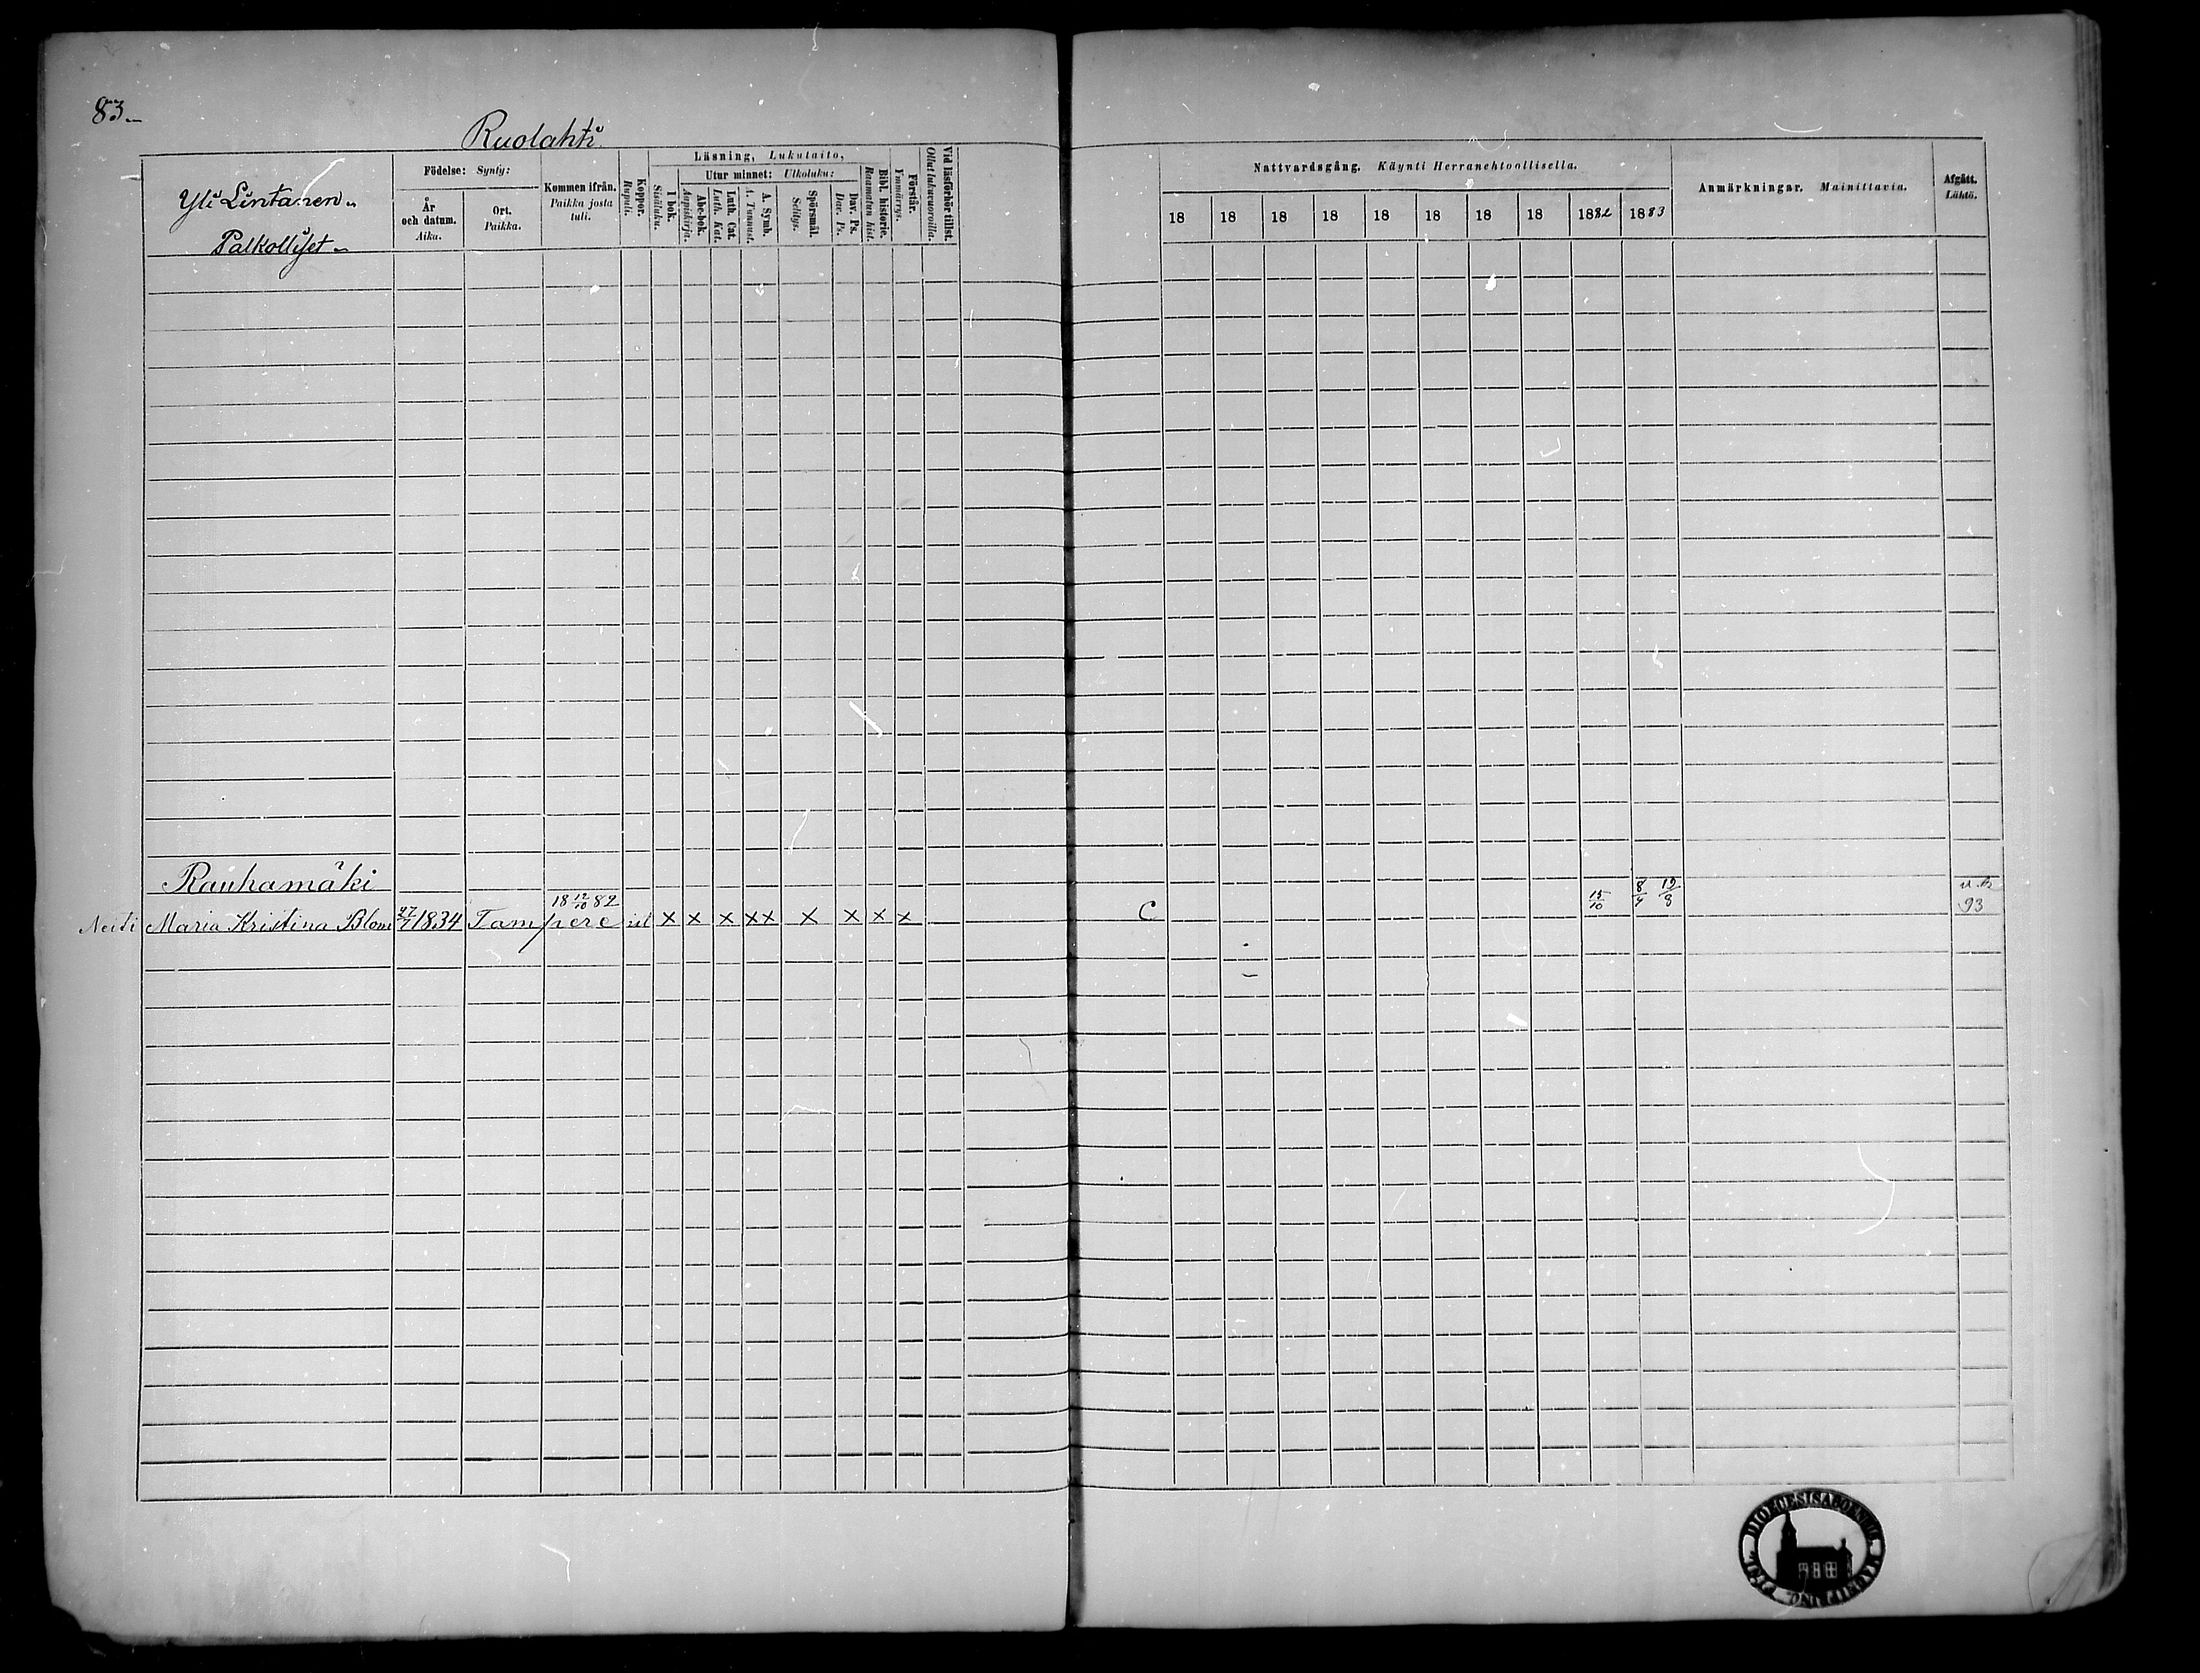 83.
Ruolahti.
Yli Lintanen.
Palkolliset.
Födelse: Synty:
År och datum. Aika.
Ort. Paikka.
Kommen ifrån. Paikka josta tuli.
Koppor. Rupuli.
Läsning, Lukutaito,
I bok. Sisäluku.
Utur minnet: Ulkoluku:
Abc-bok. Aapiskirja.
Luth. Cat. Luth. Kat.
A. Symb. A. Tunnust.
Spörsmål. Selitys.
Dav. Ps. Dav. Ps.
Bibl. historie. Raamatun hist.
Förstår. Ymmärrys.
Vid läsförhör tillst. Ollut lukuvuoroilla.
Nattvardsgång. Käynti Herranehtoollisella.
18 18 18 18 18 18 18 18 1882 1883
Anmärkningar. Mainittavia.
Afgått. Lähtö.
Rauhamäki
18 12/10 82
Neiti Maria Kristina Blom 27/7 1834 Tampere x x x xx x x x x C 15/10 8/4 19/8 93